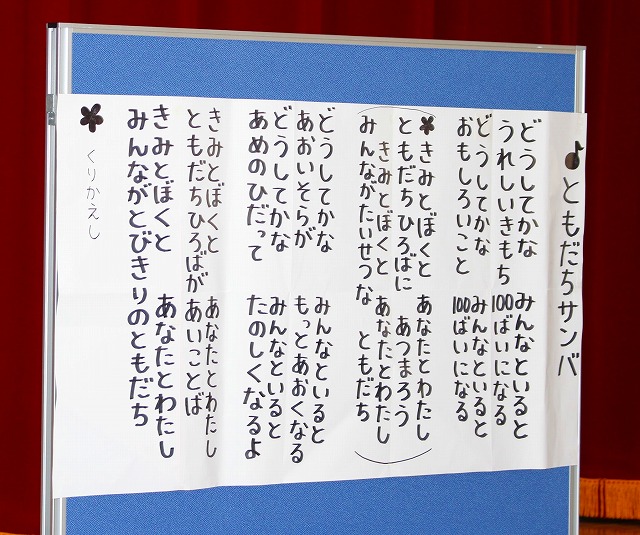 ♪ともだちサンバ
どうしてかな みんなといると
うれしいきもち 100ばいになる
どうしてかな みんなといると
おもしろいこと 100ばいになる
きみとぼくと あなたとわたし
ともだちひろばに あつまろう
きみとぼくと あなたとわたし
みんながたいせつな ともだち
どうしてかな みんなといると
あおいそらが もっとあおくなる
どうしてかな みんなといると
あめのひだって たのしくなるよ
きみとぼくと あなたとわたし
ともだちひろばが あいことば
きみとぼくと あなたとわたし
みんながとびきりのともだち
くりかえし